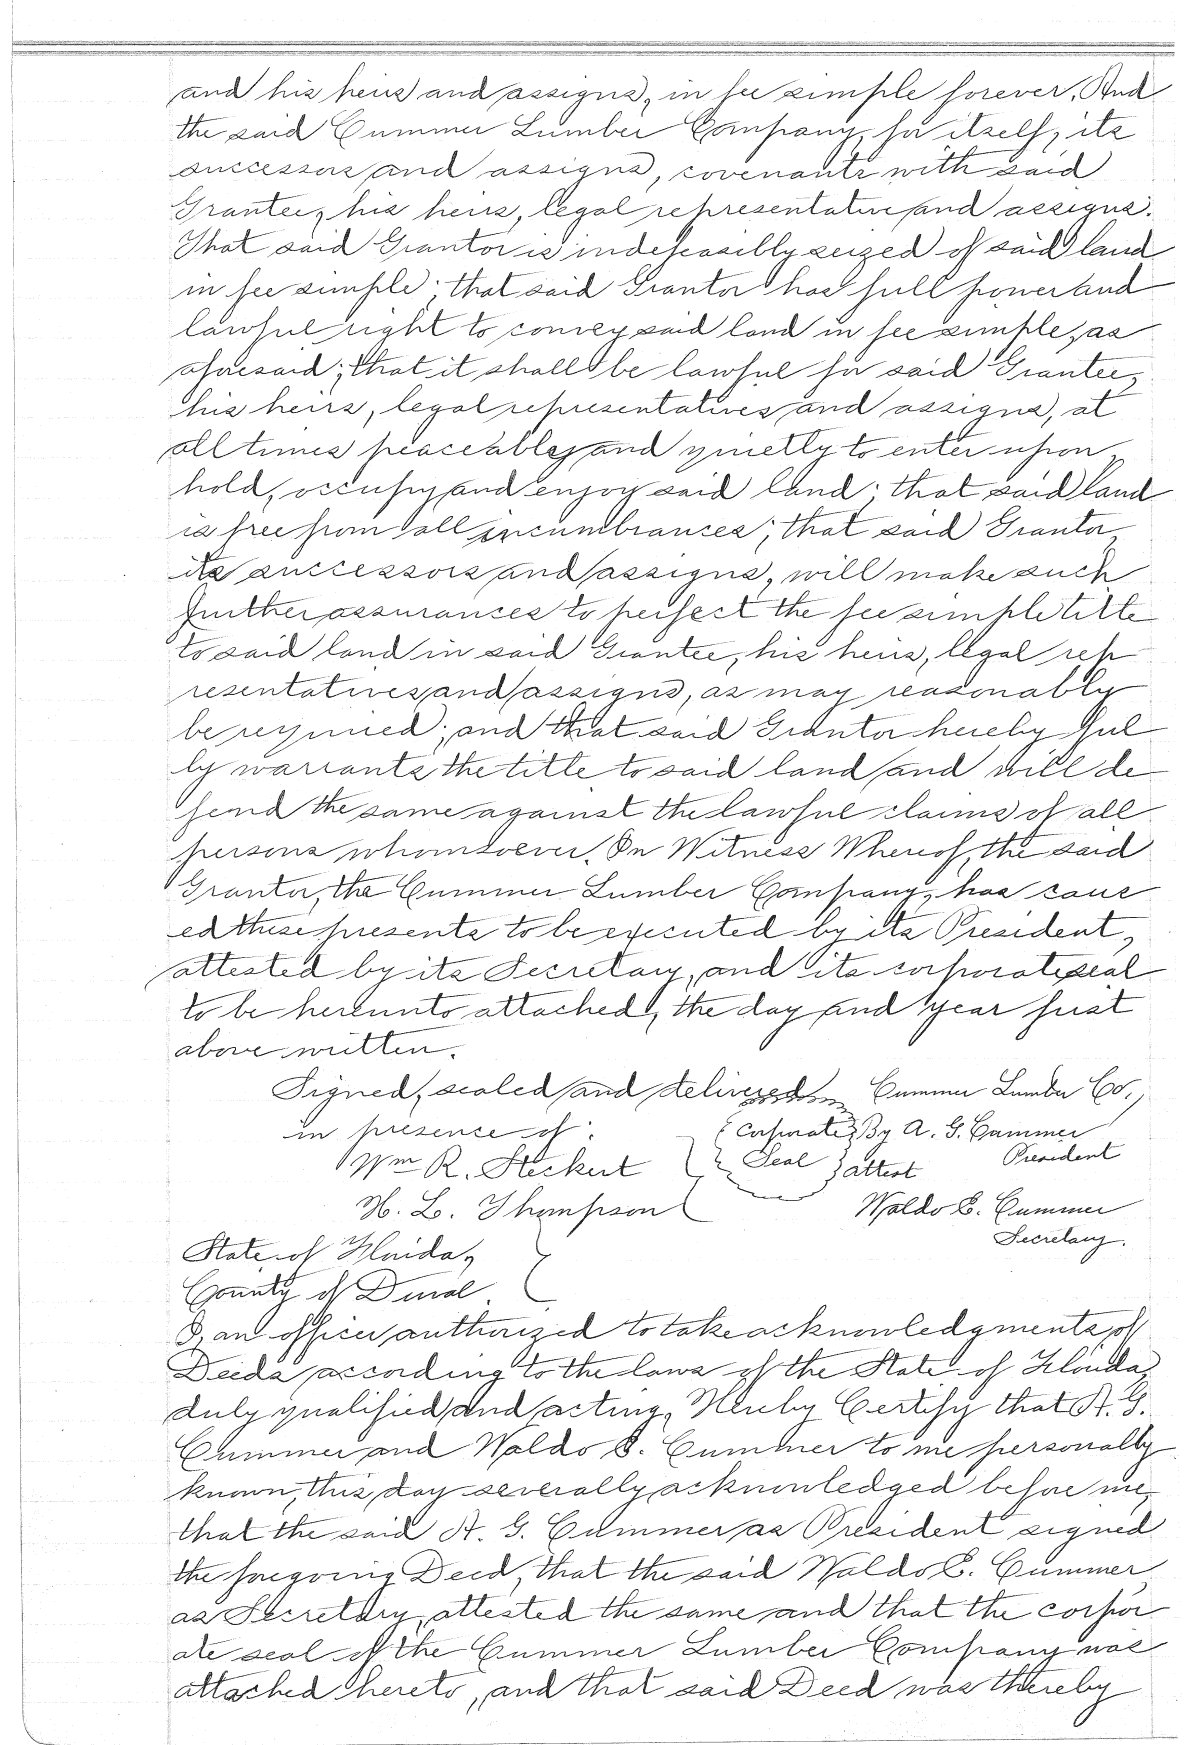 and his heirs and assigns, in fee simple forever. And
the said Cummer Lumber Company, for itself, its
successors and assigns, covenants with said
Grantee, his heirs, legal representative and assigns.
That said Grantor is indefeasibly seized of said land
in fee simple; that said Grantor has full power and
lawful right to convey said land in fee simple, as
aforesaid; that it shall be lawful for said Grantee,
his heirs, legal representatives and assigns, at
all times peaceably and quietly to enter upon,
hold, occupy and enjoy said land; that said land
is free from all incumbrances; that said Grantor,
its successors and assigns, will make such
further assurances to perfect the fee simple title
to said land in said Grantee, his heirs, legal rep
resentatives and assigns, as may reasonably
be required; and that said Grantor hereby ful
ly warrants the title to said land and will de
fend the same against the lawful claims of all
persons whomsoever. In Witness Whereof, the said
Grantor, the Cummer Lumber Company, has caus
ed these presents to be executed by its President,
attested by its Secretary, and its corporate seal
to be hereunto attached, the day and year first
above written.
Signed, sealed and delivered Cummer Lumber Co.,
in presence of: Corporate By A. G. Cummer
Wm R. Steckert Seal attest President
H. L. Thompson Waldo E. Cummer
Secretary.
State of Florida,
County of Duval.
I, an officer authorized to take acknowledgments of
Deeds according to the laws of the State of Florida,
duly qualified and acting, Hereby Certify that A. G.
Cummer and Waldo E. Cummer to me personally
known, this day severally acknowledged before me,
that the said A. G. Cummer as President signed
the foregoing Deed, that the said Waldo E. Cummer,
as Secretary, attested the same and that the corpor
ate seal of the Cummer Lumber Company was
attached hereto, and that said Deed was thereby